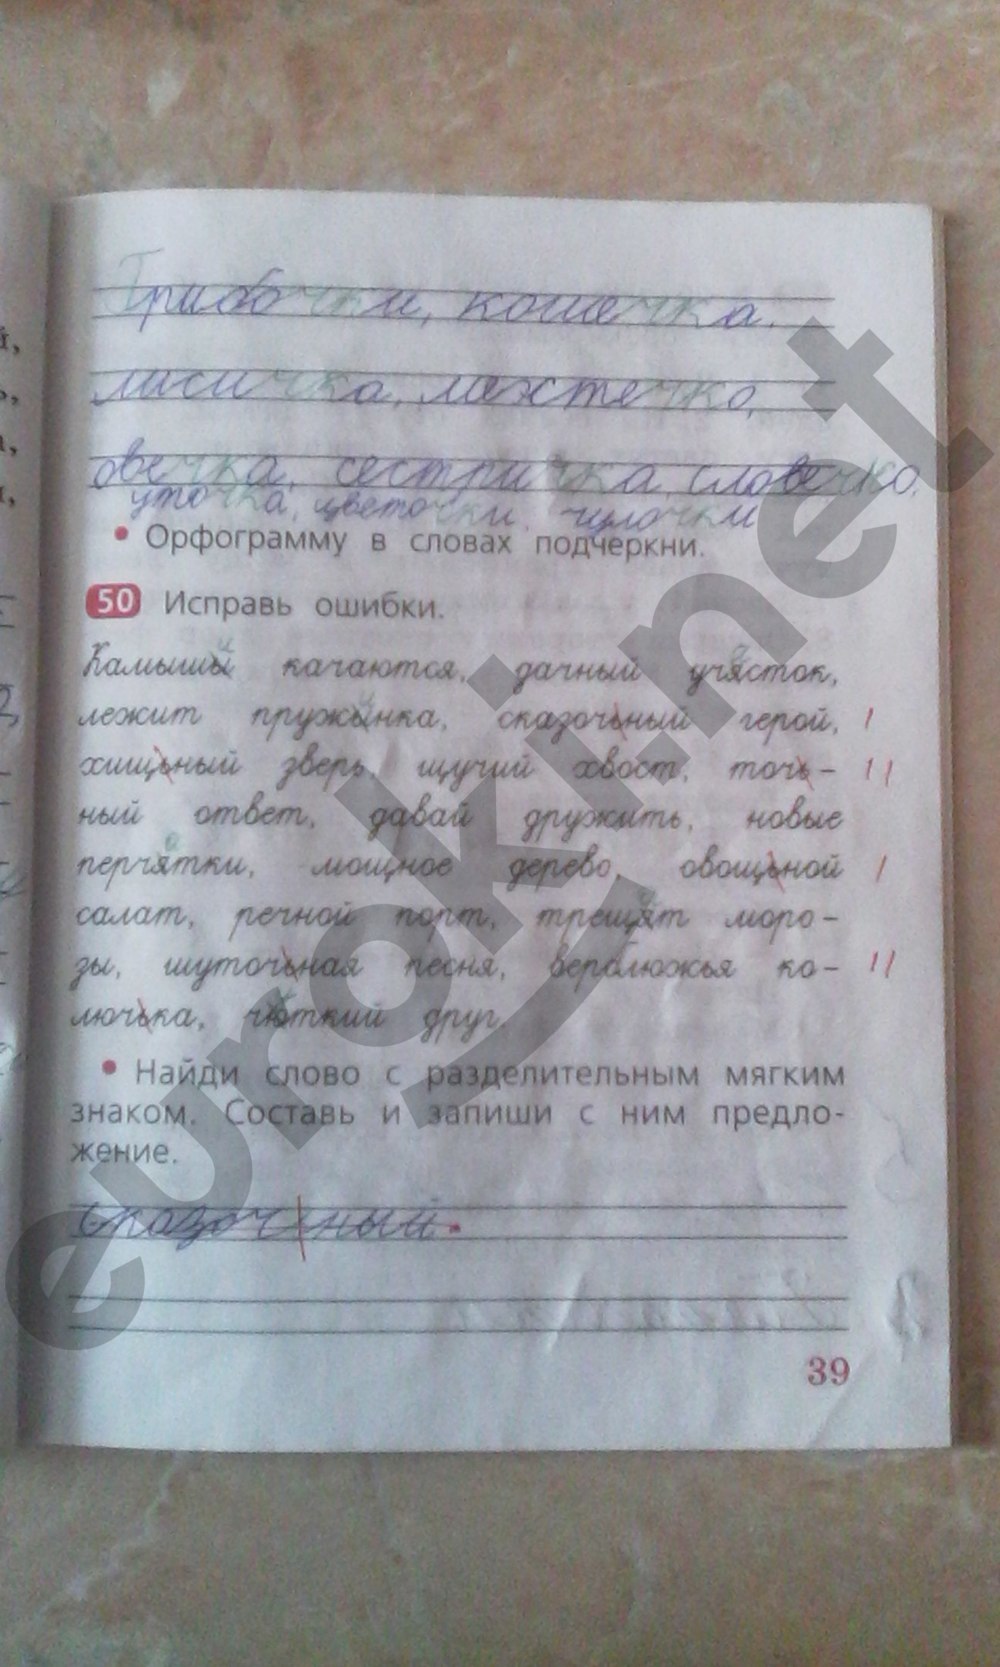 Грибочки, кошечка,
лисичка, местечко,
овечка, сестричка, словечко,
уточка, цветочки, чулочки
• Орфограмму в словах подчеркни.
50 Исправь ошибки.
Камышы качаются, дачный учясток,
лежит пружынка, сказочьный герой,
хищьный зверь, щучий хвост, точь-
ный ответ, давай дружить, новые
перчятки, мощное дерево, овощьной
салат, речной порт, трещят моро-
зы, шуточьная песня, верблюжья ко-
лючька, чюткий друг.
• Найди слово с разделительным мягким
знаком. Составь и запиши с ним предло-
жение.
Сказочный.
39
euroki.net